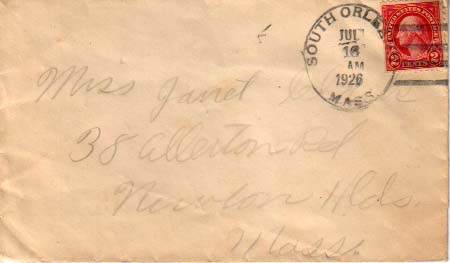 SOUTH ORLE
JUL
16
AM
1926
MASS.
UNITED STATES POSTAGE
2 CENTS 2
Miss Janet
38 Allerton Rd
Newton Hlds.
Mass.